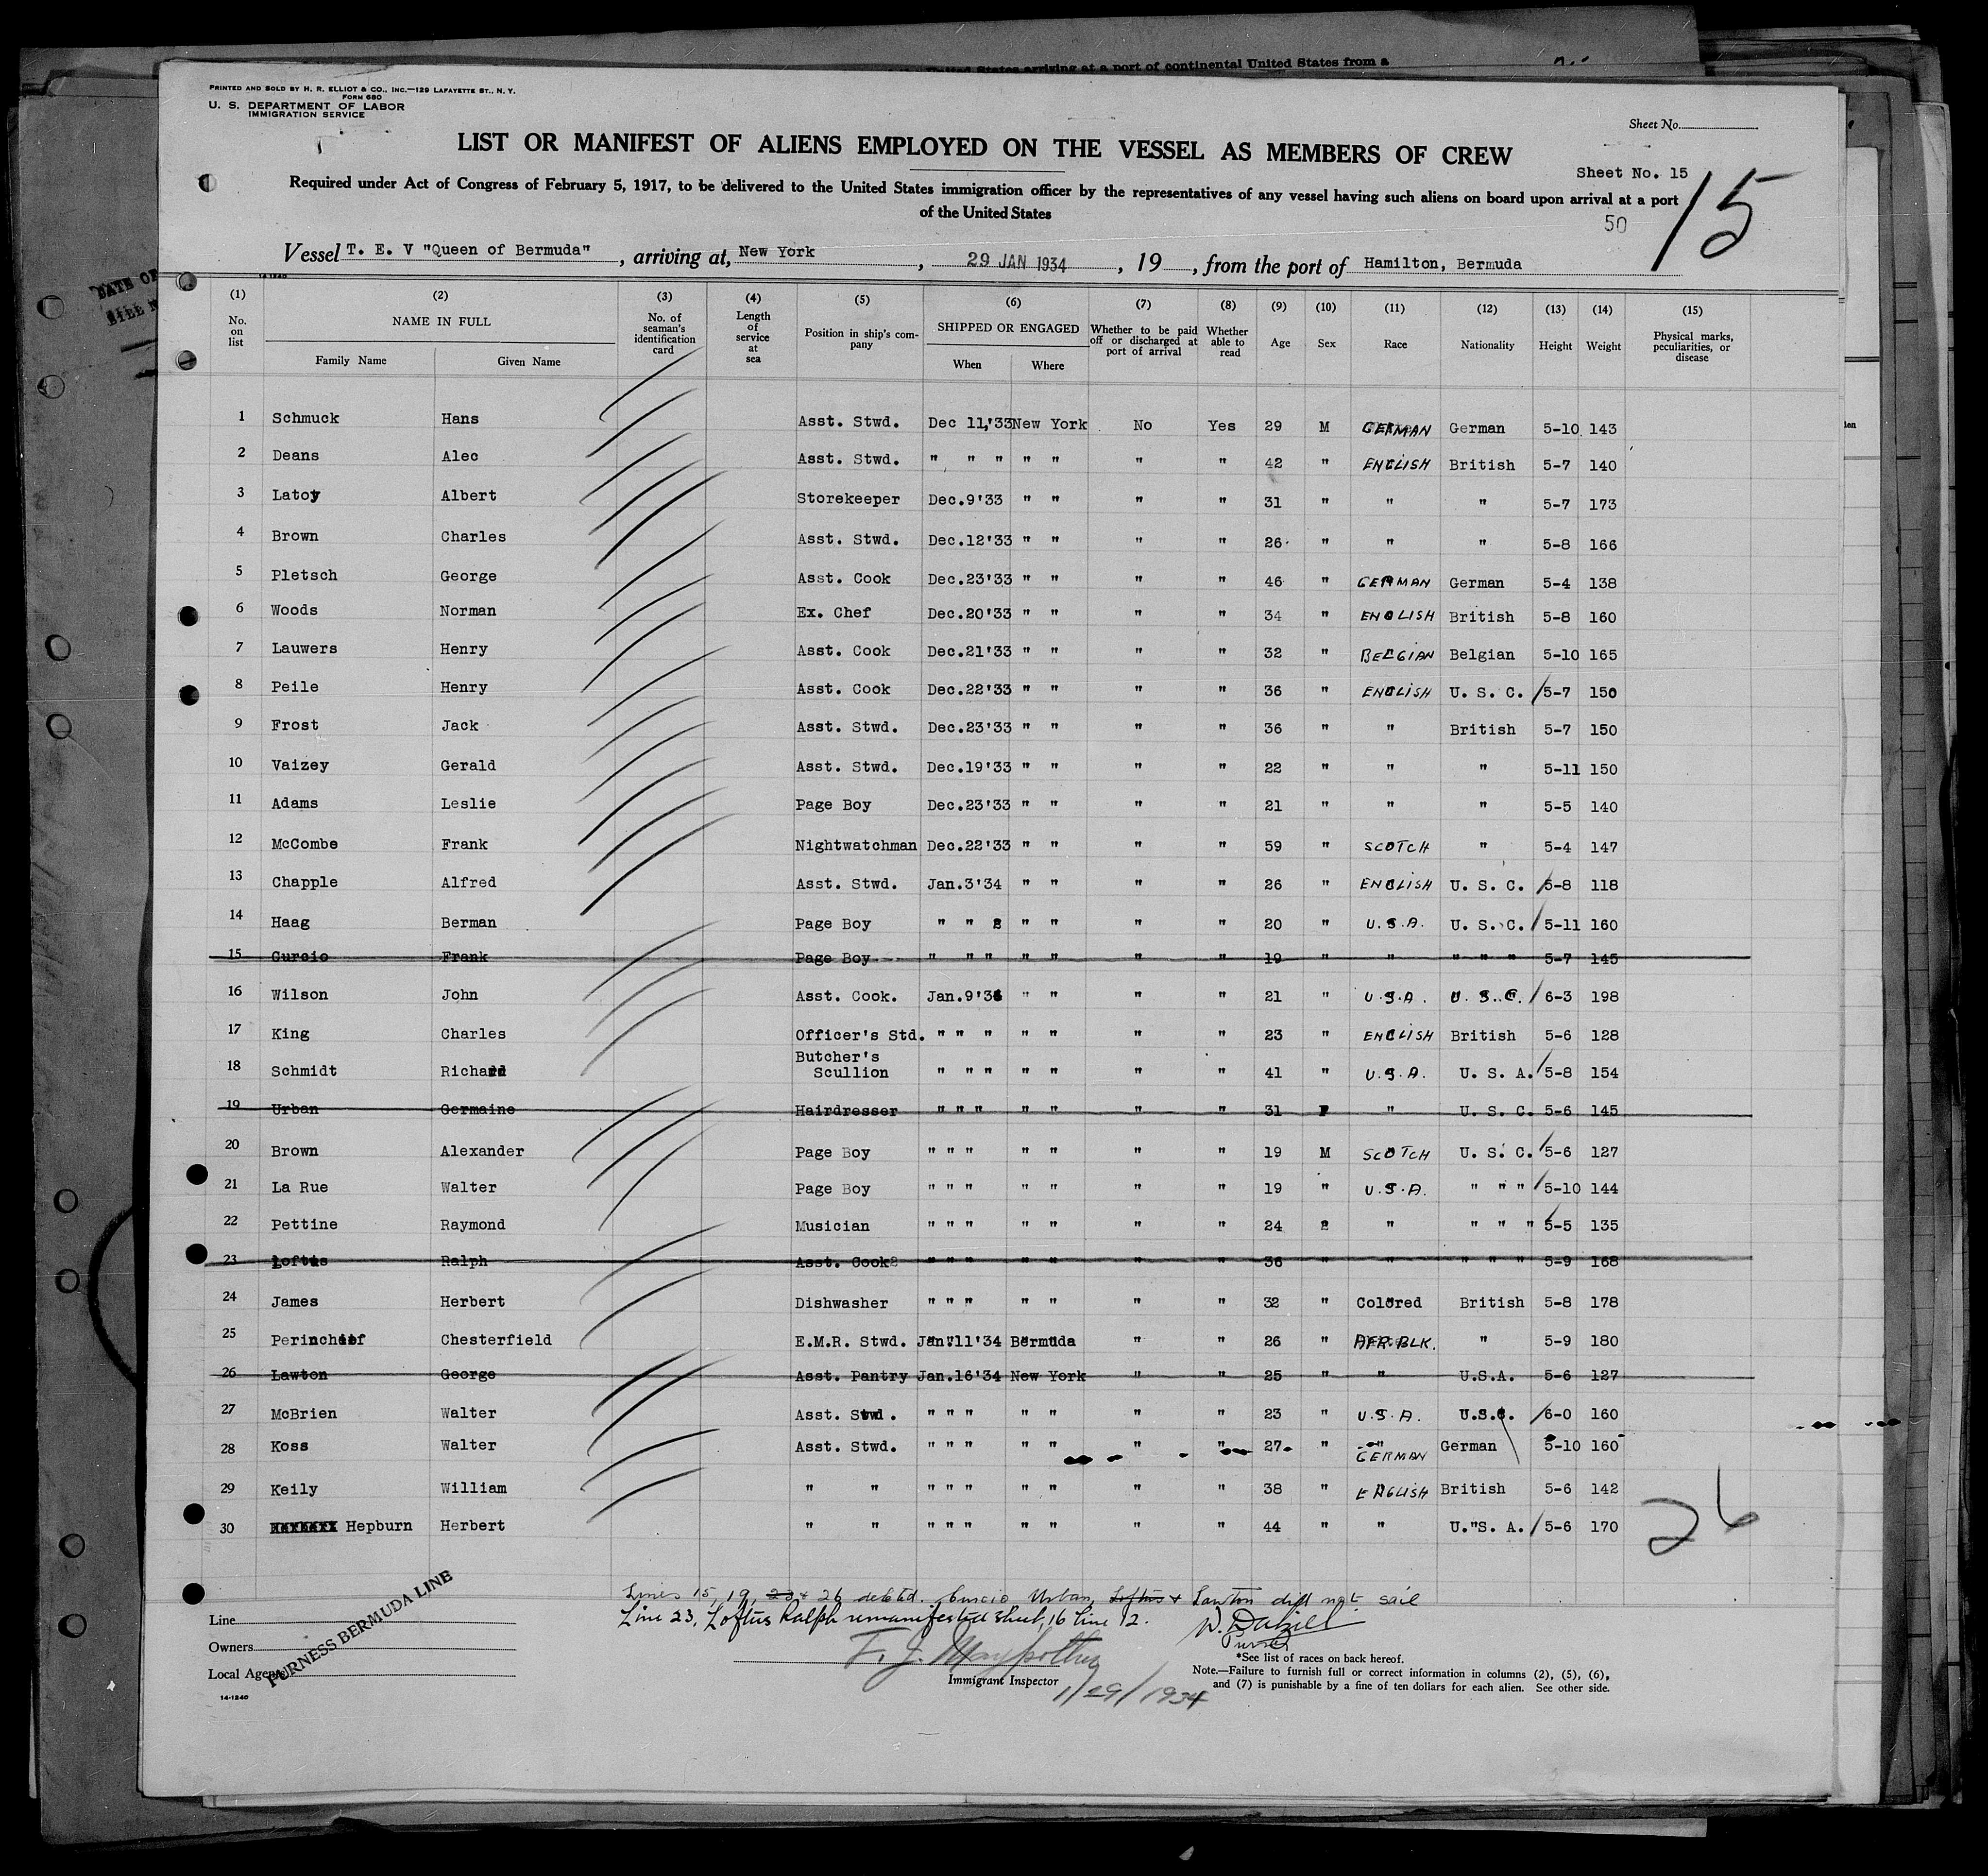 United States arriving at a port of continental United States from a
PRINTED AND SOLD BY H. R. ELLIOT & CO., INC.—129 LAFAYETTE ST., N. Y.
FORM 680
U. S. DEPARTMENT OF LABOR
IMMIGRATION SERVICE
Sheet No.
LIST OR MANIFEST OF ALIENS EMPLOYED ON THE VESSEL AS MEMBERS OF CREW
Sheet No. 15
15
Required under Act of Congress of February 5, 1917, to be delivered to the United States immigration officer by the representatives of any vessel having such aliens on board upon arrival at a port
of the United States
50
Vessel T. E. V "Queen of Bermuda", arriving at, New York, 29 JAN 1934, 19, from the port of Hamilton, Bermuda
14-1240
(1) (2) (3) (4) (5) (6) (7) (8) (9) (10) (11) (12) (13) (14) (15)
No. on list NAME IN FULL Family Name Given Name No. of seaman's identification card Length of service at sea Position in ship's company SHIPPED OR ENGAGED When Where Whether to be paid off or discharged at port of arrival Whether able to read Age Sex Race Nationality Height Weight Physical marks, peculiarities, or disease
1 Schmuck Hans Asst. Stwd. Dec 11,'33 New York No Yes 29 M GERMAN German 5-10 143
2 Deans Alec Asst. Stwd. " " " " " " " 42 " ENGLISH British 5-7 140
3 Latoy Albert Storekeeper Dec.9'33 " " " " 31 " " " 5-7 173
4 Brown Charles Asst. Stwd. Dec.12'33 " " " " 26 " " " 5-8 166
5 Pletsch George Asst. Cook Dec.23'33 " " " " 46 " GERMAN German 5-4 138
6 Woods Norman Ex. Chef Dec.20'33 " " " " 34 " ENGLISH British 5-8 160
7 Lauwers Henry Asst. Cook Dec.21'33 " " " " 32 " BELGIAN Belgian 5-10 165
8 Peile Henry Asst. Cook Dec.22'33 " " " " 36 " ENGLISH U. S. C. 5-7 150
9 Frost Jack Asst. Stwd. Dec.23'33 " " " " 36 " " British 5-7 150
10 Vaizey Gerald Asst. Stwd. Dec.19'33 " " " " 22 " " " 5-11 150
11 Adams Leslie Page Boy Dec.23'33 " " " " 21 " " " 5-5 140
12 McCombe Frank Nightwatchman Dec.22'33 " " " " 59 " SCOTCH " 5-4 147
13 Chapple Alfred Asst. Stwd. Jan.3'34 " " " " 26 " ENGLISH U. S. C. 5-8 118
14 Haag Berman Page Boy " " 2 " " " " 20 " U.S.A. U. S. C. 5-11 160
15 Curcio Frank Page Boy " " " " " " " 19 " " " " " 5-7 145
16 Wilson John Asst. Cook. Jan.9'34 " " " " 21 " U.S.A. U. S. C. 6-3 198
17 King Charles Officer's Std. " " " " " " " 23 " ENGLISH British 5-6 128
18 Schmidt Richard Butcher's Scullion " " " " " " " 41 " U.S.A. U. S. A. 5-8 154
19 Urban Germaine Hairdresser " " " " " " " 31 F " U. S. C. 5-6 145
20 Brown Alexander Page Boy " " " " " " " 19 M SCOTCH U. S. C. 5-6 127
21 La Rue Walter Page Boy " " " " " " " 19 " U.S.A. " " " 5-10 144
22 Pettine Raymond Musician " " " " " " " 24 2 " " " " 5-5 135
23 Loftis Ralph Asst. Cook2 " " " " " " " 36 " " " " " 5-9 168
24 James Herbert Dishwasher " " " " " " " 32 " Colored British 5-8 178
25 Perinchief Chesterfield E.M.R. Stwd. Jan.11'34 Bermuda " " 26 " AFR.BLK. " 5-9 180
26 Lawton George Asst. Pantry Jan.16'34 New York " " 25 " " U.S.A. 5-6 127
27 McBrien Walter Asst. Stwd. " " " " " " " 23 " U.S.A. U.S.C. 6-0 160
28 Koss Walter Asst. Stwd. " " " " " " " 27 " " GERMAN German 5-10 160
29 Keily William " " " " " " " " " 38 " ENGLISH British 5-6 142
30 Hepburn Herbert " " " " " " " " " 44 " " U. S. A. 5-6 170
26
Lines 15, 19, 23 + 26 deleted. Curcio Urban, Loftus + Lawton did not sail
Line 23, Loftus Ralph remanifested sheet, 16 line 12.
Purser
Line
Owners
Local Agents
FURNESS BERMUDA LINE
14-1240
Immigrant Inspector
1/29/1934
*See list of races on back hereof.
Note.—Failure to furnish full or correct information in columns (2), (5), (6), and (7) is punishable by a fine of ten dollars for each alien. See other side.